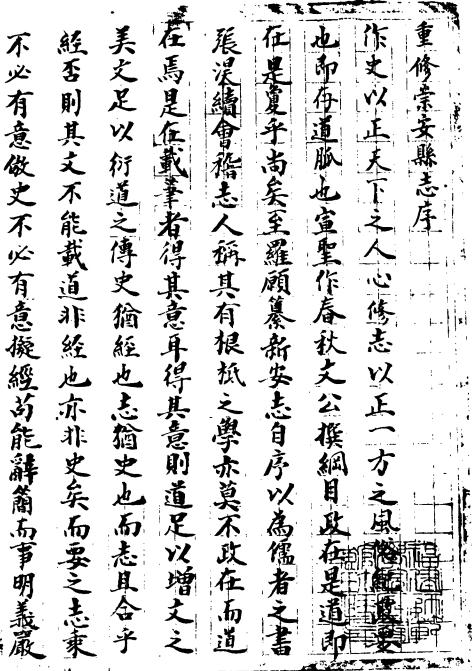 重修崇安縣志序
作史以正天下之人心修志以正一方之風俗
也即存道脈也宣聖作春秋文公撰綱目政在是道即
在是夐乎尚矣至羅願纂新安志自序以為儒者之書
張淏續會稽志人稱其有根柢之學亦莫不政在而道
在焉是在載筆者得其意耳得其意則道足以增文之
美文足以衍道之傳史猶經也志猶史也而志且合乎
經否則其文不能載道非經也亦非史矣而要之志乘
不必有意倣史不必有意擬經苟能辭簡而事明義嚴